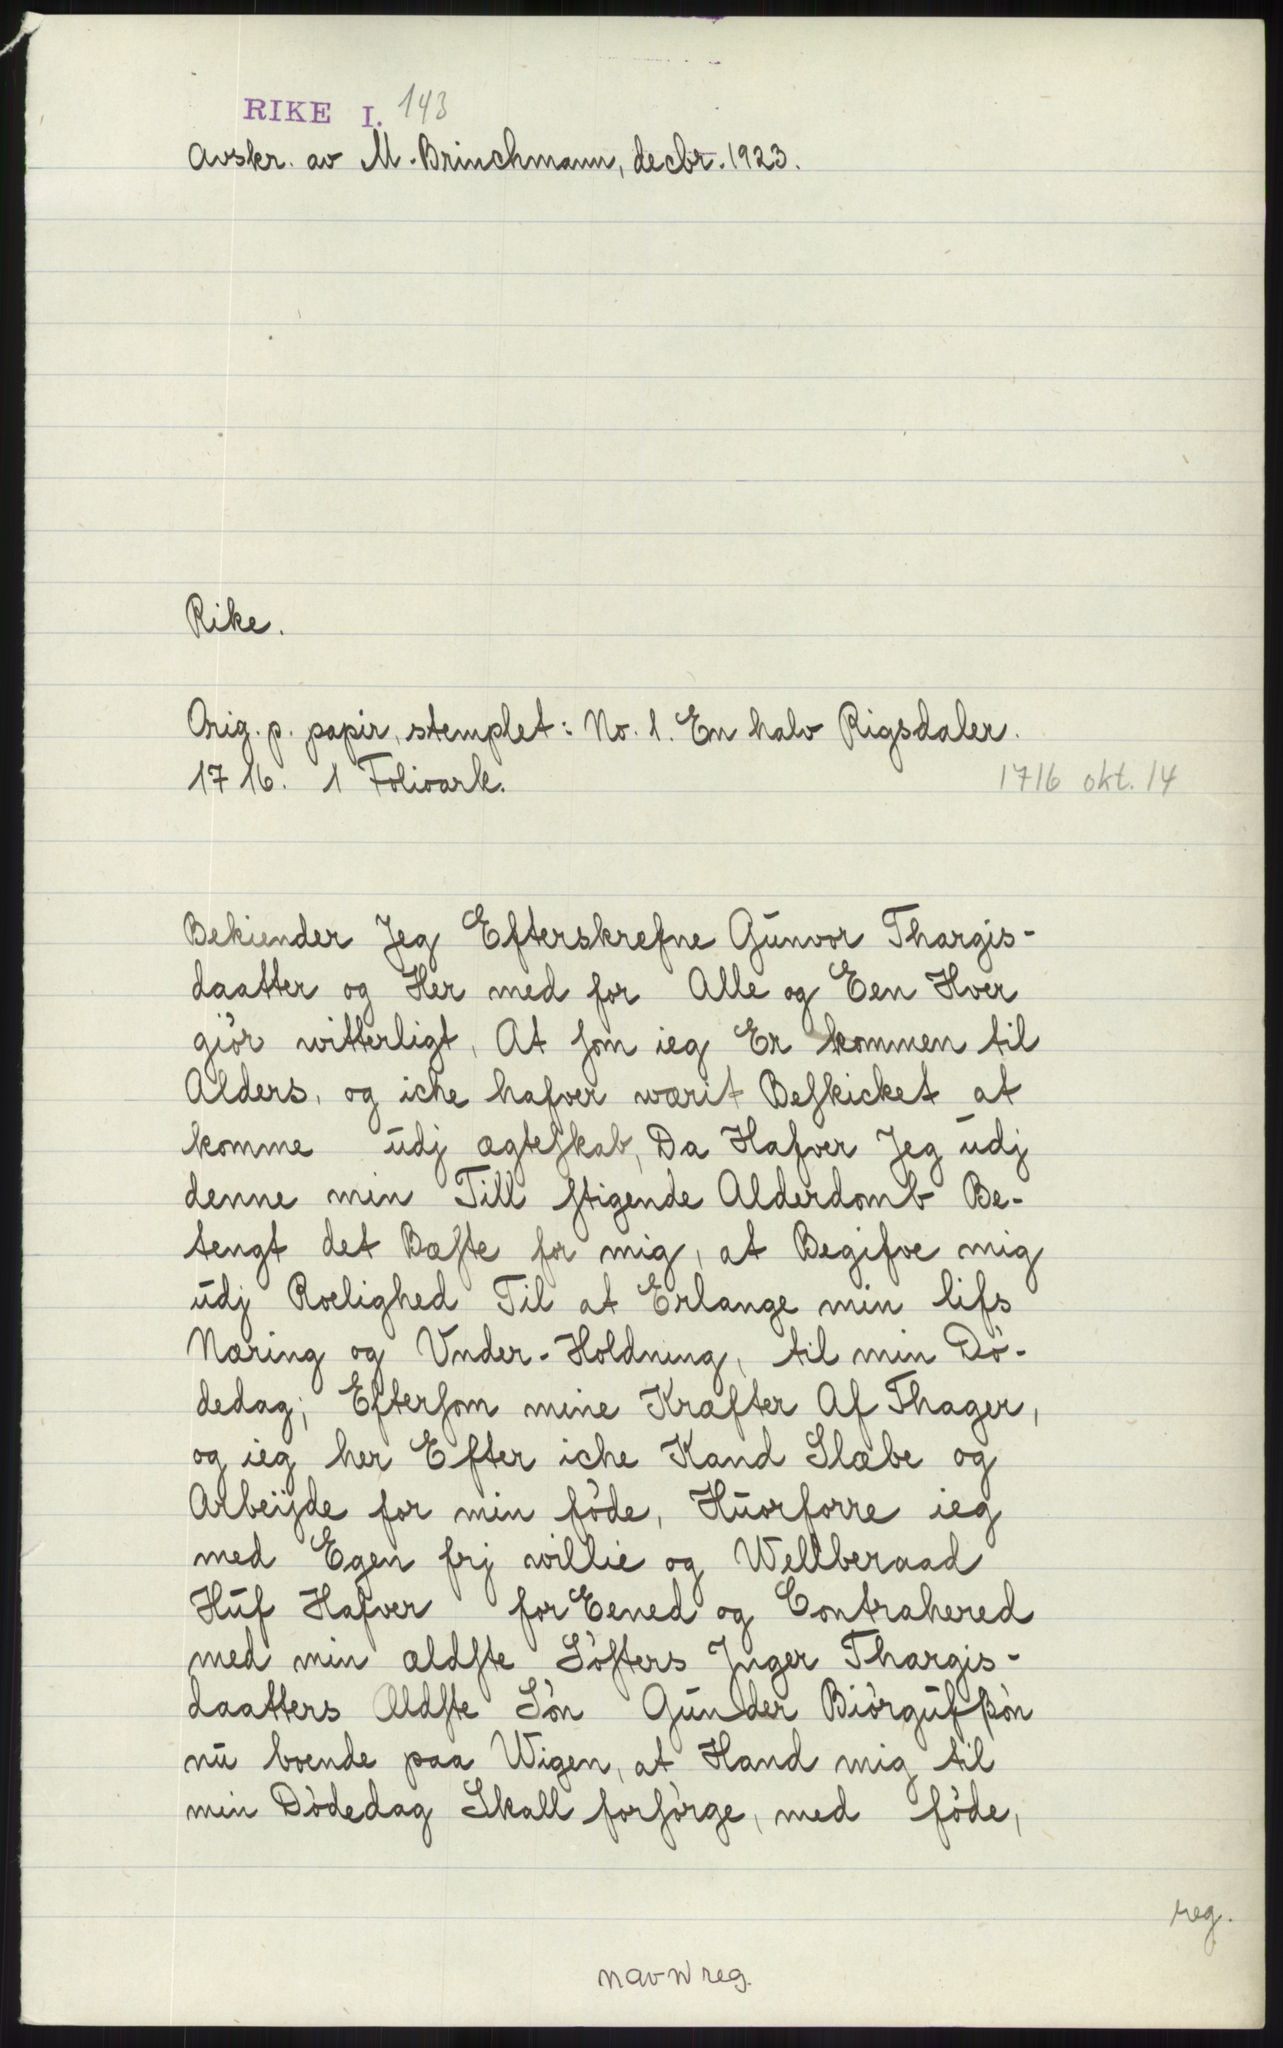 RIKE I. 143
Avskr. av M. Brinchmann, decbr. 1923.
Rike.
Orig. p. papir, stemplet: No. 1. En halv Rigsdaler.
1716. 1 Folioark.
1716 okt. 14
Bekiender Jeg Efterskrefne Gunvor Thargis-
daatter og Her med for Alle og Een Hver
giör witterligt, At ſom ieg Er kommen til
Alders, og iche hafver wærit Beſkicket at
komme udj ægteſkab, Da Hafver Jeg udj
denne min Till ſtigende Alderdomb Be-
tengt det Bæſte for mig, at Begifve mig
udj Roelighed Til at Erlange min lifs
Næring og Vnder-Holdning, til min Dö-
dedag; Efterſom mine Kræfter Af Thager,
og ieg her Efter iche Kand Slæbe og
Arbeÿde for min föde, Huorforre ieg
med Egen frj willie og Wellberaad
Huf Hafver for Eened og Contrahered
med min ældſte Söſters Jnger Thargis-
daatters Ældſte Sön Gunder Biörgufßön
nu boende paa Wigen, at Hand mig til
min Dödedag Skall forſörge, med föde,
reg.
navnreg.